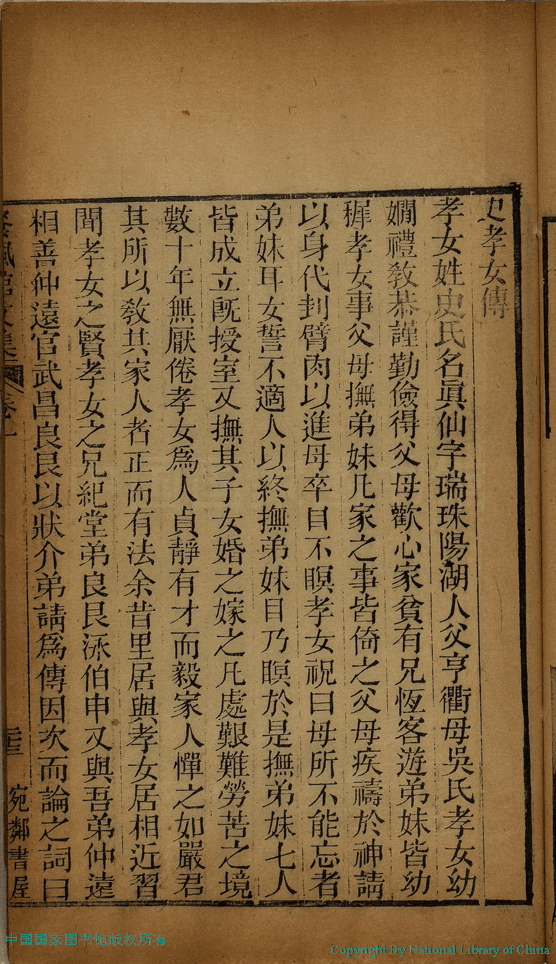 史孝女傳
孝女姓史氏名眞仙字瑞珠陽湖人父亨衢母吳氏孝女幼
嫺禮敎恭謹勤儉得父母歡心家貧有兄恆客遊弟妹皆幼
穉孝女事父母撫弟妹凡家之事皆倚之父母疾禱於神請
以身代刲臂肉以進母卒目不瞑孝女祝曰母所不能忘者
弟妹耳女誓不適人以終撫弟妹目乃瞑於是撫弟妹七人
皆成立旣授室又撫其子女婚之嫁之凡處艱難勞苦之境
數十年無厭倦孝女爲人貞靜有才而毅家人憚之如嚴君
其所以敎其家人者正而有法余昔里居與孝女居相近習
聞孝女之賢孝女之兄紀堂弟良艮泳伯申又與吾弟仲遠
相善仲遠官武昌良艮以狀介弟請爲傳因次而論之詞曰
文集 卷上
宛鄰書屋
中国国家图书馆版权所有
Copyright By National Library of China